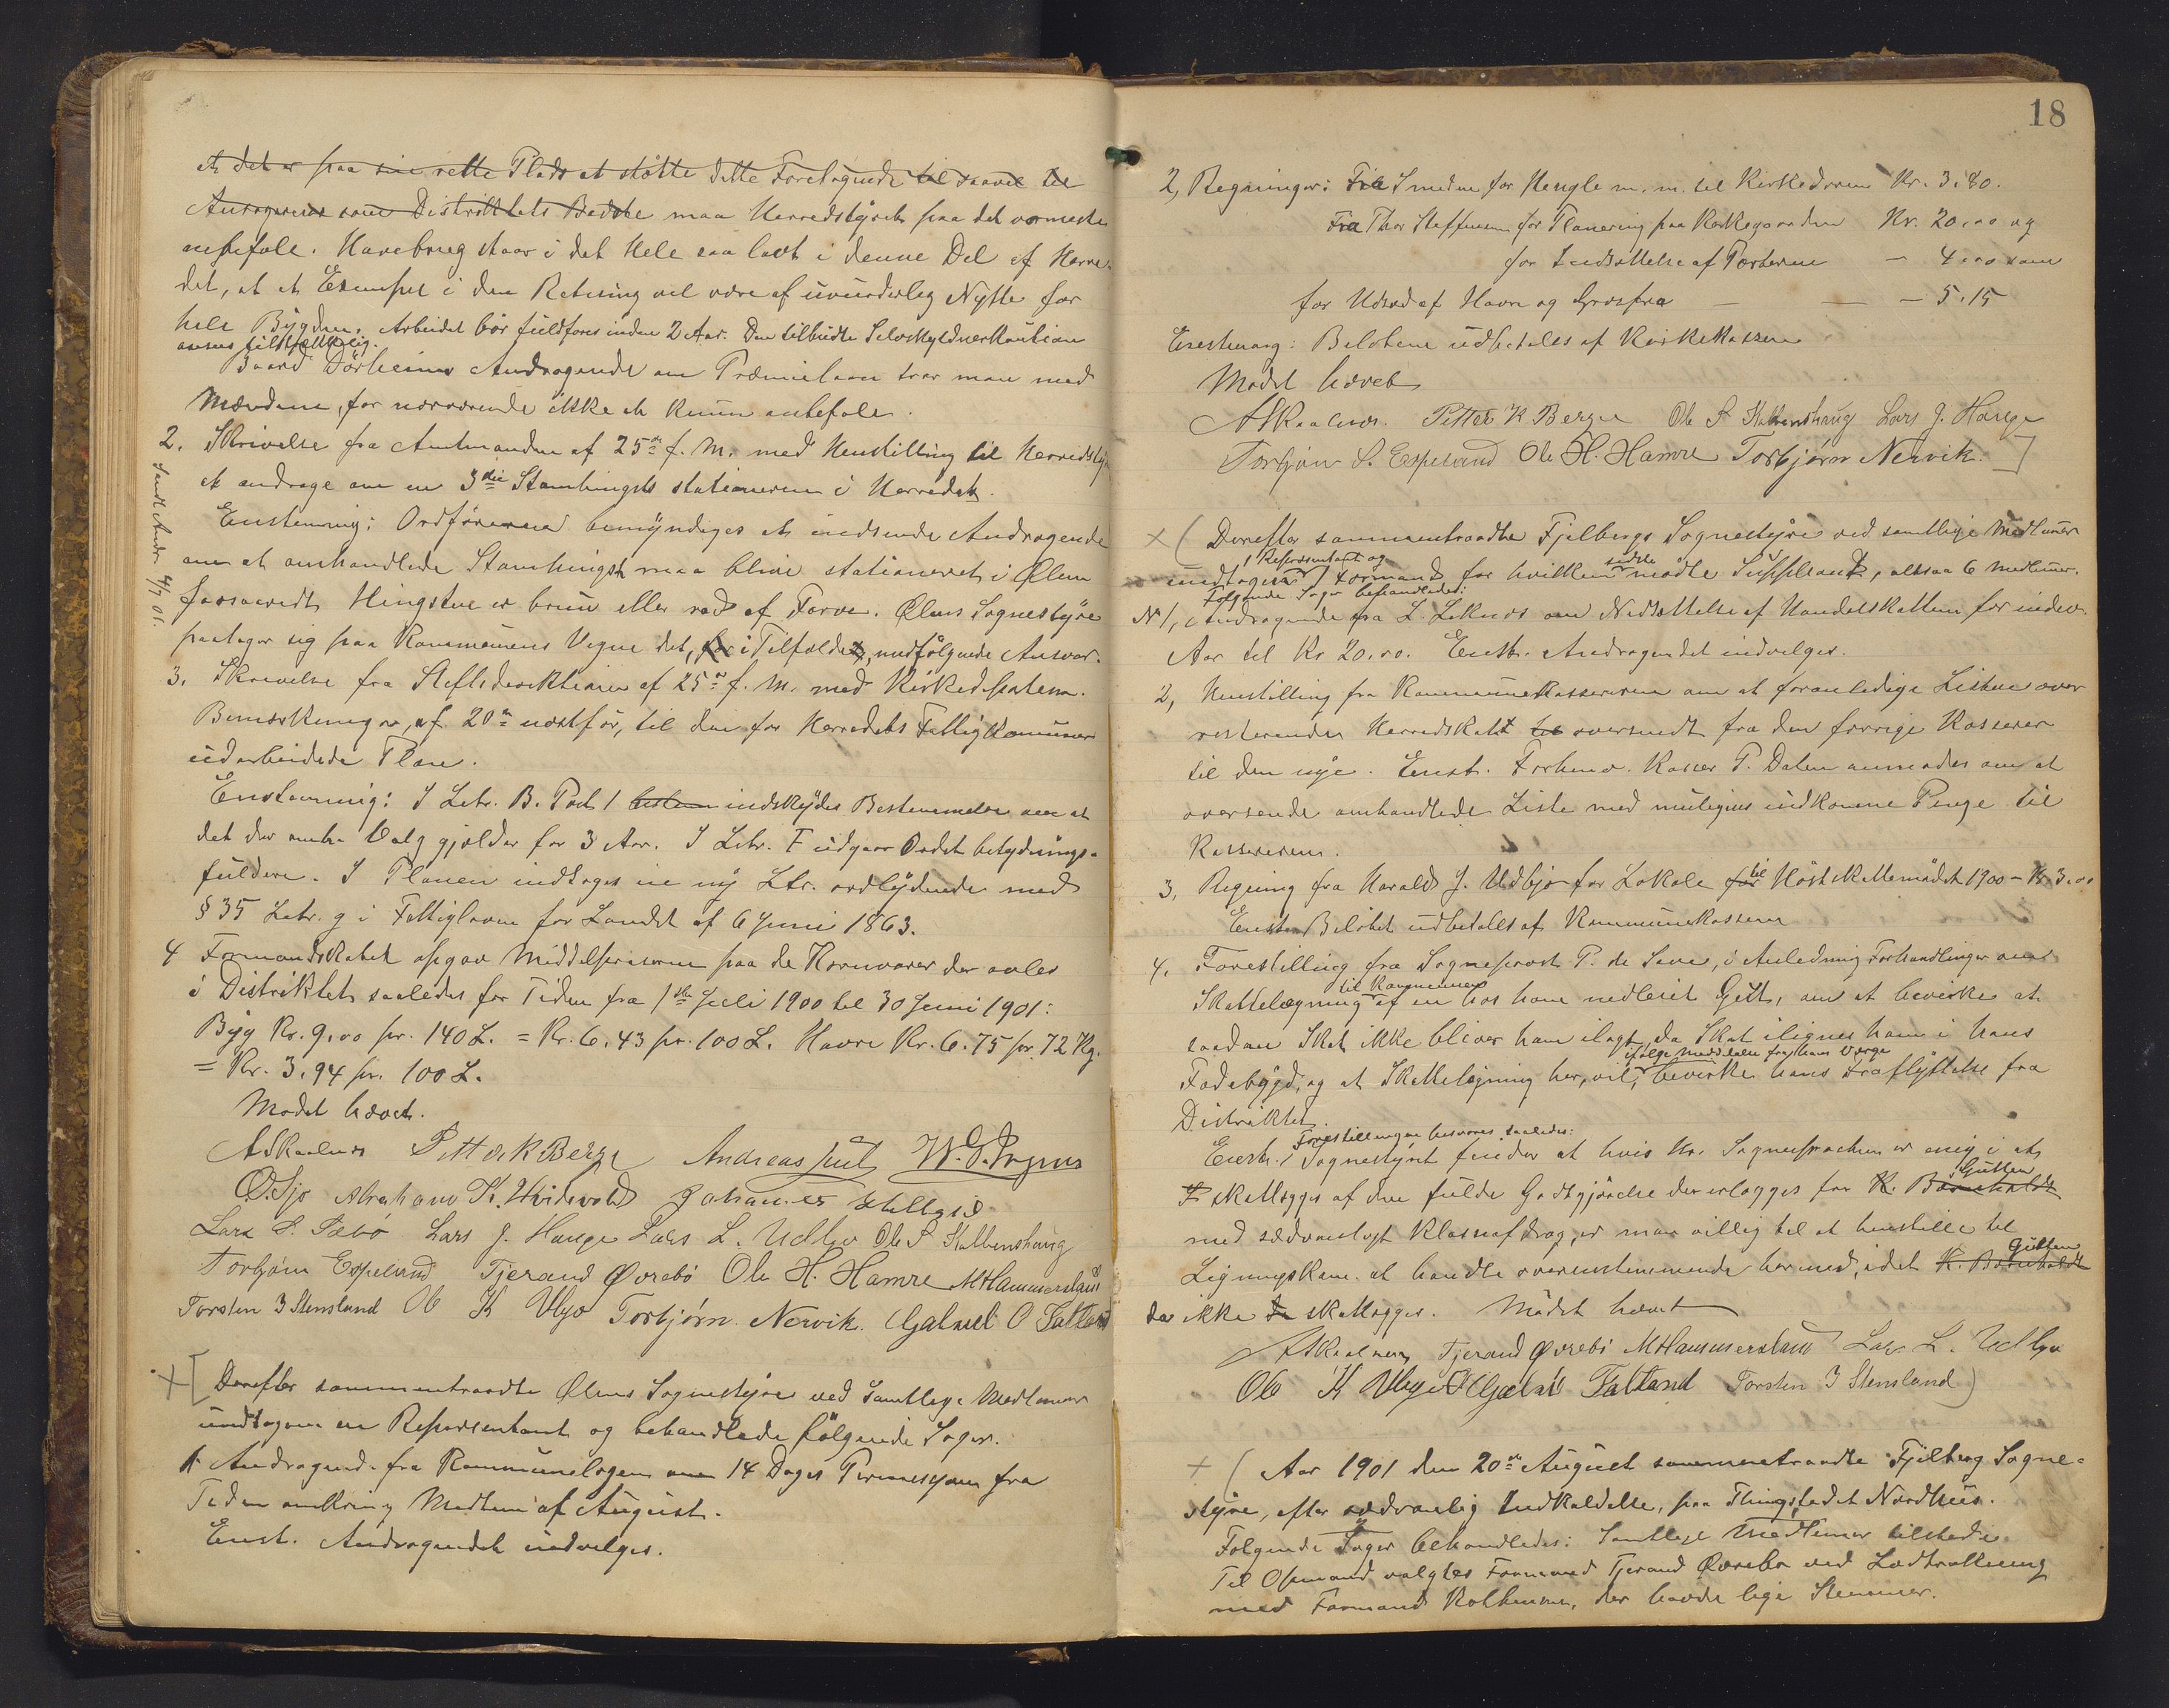 at det er paa sin rette Plads at støtte dette Foretagende til saavel til
Ansøgerens som Distriktets Bedste maa Herredstyret paa det varmeste
anbefale. Havebrug staar i det Hele saa lavt i denne Del af Herre-
det, at et Exempel i den Retning vil være af uvurderlig Nytte for
hele Bygden. Arbeidet bör fuldføres inden 2 Aar. Den tilbudte Selvskyldnerkaution
ansees tilstrækkelig.
Baard Dörheims Andragende om Præmielaan tror man med
Mændene, for nærværende ikke at kunne anbefale.
2. Skrivelse fra Amtmanden af 25de f. M. med Henstilling til Herredsty
at andrage om en 3die Stamhingsts stationeren i Herredet.
Enstemmig: Ordföreren bemyndiges at indsende Andragende
om at omhandlede Stamhingst maa blive stationeret i Ølen
forsaavidt Hingsten er brun eller rød af Farve. Ølens Sognestyre
paatager sig paa Kommunens Vegne det, for i Tilfældet, medfølgende Ansvar.
Sendt Andr. 4/7 01.
3. Skrivelse fra Stiftsdirektionen af 25de f. M. med Kirkedepartem.
Bemærkninger, af 20de næstfør, til den for Herredets Fattigkommuner
udarbeidede Plan.
Enstemmig: I Litr. B. Post 1 indskydes Bestemmelse om at
det der omh. Valg gjælder for 3 Aar. I Litr. F udgaar Ordet betydnings-
fuldere. I Planen indtages en ny Ltr. ordlydende med
§ 35 Litr. g i Fattigloven for Landet af 6 Juni 1863.
4 Formandskabet opgav Middelpriserne paa de Kornvarer der avles
i Distriktet saaledes for Tiden fra 1ste Juli 1900 til 30 Juni 1901:
Byg Kr. 9,00 pr. 140 L. = Kr. 6.43 pr. 100 L. Havre Kr. 6.75 pr. 72 Kg.
= Kr. 3,94 pr. 100 L.
Mødet hævet.
A Skaalnes Petter K Berge Andreas Juul
Ø. Sjo Abraham K. Hvidevold Johannes
Lars S. Sæbø Lars J. Hauge Lars L. Udbjo Ole S Kalbenshaug
Torbjørn Espeland Tjerand Øvrebö Ole H. Hamre M Hammersland
Torsten J Stensland Ole K Ulvo Torbjørn Nervik. Gabriel O Fatland
Derefter sammentraadte Ølens Sognestyre ved samtlige Medlemmer
undtagen en Repræsentant og behandlede følgende Sager.
1. Andragende fra Kommunelægen om 14 Dages Permission fra
Tiden omkring Midten af August.
Enst. Andragendet indvilges.
18
2, Regninger: Fra Smeden for Hengsle m. m. til Kirkedøren Kr. 3.80.
Fra Thor Steffensen for Planering paa Kirkegaarden Kr. 20,00 og
for Indsættelse af Portene – 4,00 som
for Udsæd af Havre og Græsfrø – 5,15
Enstemmig: Beløbene udbetales af Kirkekassen
Mødet hævet
A Skaalnes. Petter K Berge Ole S Kalbenshaug Lars J. Hauge
Torbjørn S. Espeland Ole H. Hamre Torbjørn Nervik.
Derefter sammentraadte Fjelbergs Sognestyre ved samtlige Medlemmer
undtagen 1 Repræsentant og 1 Formand for hvilken sidste mødte Suppleant, altsaa 6 Medlemmer.
Følgende Sager behandledes:
No 1, Andragende fra L. Leknes om Nedsættelse af Handelskatten for indev.
Aar til Kr 20.00. Enst. Andragendet indvilges.
2, Henstilling fra Kommunekassereren om at foranledige Listen over
resterende Herredskat til oversendt fra den forrige Kasserer
til den nye. Enst. Forhenv. Kasser P. Dalen anmodes om at
oversende omhandlede Liste med muligens indkomne Penge til
Kassereren.
3, Regning fra Harald J. Udbjo for Lokale for til Høstskattemødet 1900 – Kr 3.00
Enst. Beløbet udbetales af Kommunekassen
4. Forestilling fra Sogneprest P. de Seve, i Anledning Forhandlinger om
Skattelægning til Kommunen af en hos ham nedleiet Gut, om at bevirke at
saadan Skat ikke bliver ham ilagt, da Skat ilignes ham i hans
Fødebygd, og at Skattelægning her, vil, ifølge Meddelelse fra hans Værge bevirke hans Fraflyttelse fra
Distriktet.
Enst. Forestillingen besvares saaledes:
Sognestyret finder at hvis Hr. Sognepresten er enig i at
skattlægges af den fulde Godtgjørelse der erlægges for K. Barnholdt Gutten
med sædvanligt Klassefradrag, er man villig til at henstille til
Ligningskom. at handle overensstemmende hermed, idet K. Barnholdt Gutten
da ikke skattlægges. Mödet hævet
A Skaalnes Tjerand Øvrebö M Hammersland Lars L. Udbjo
Ole K Ulvo Gabriel Fatland Torsten J Stensland
Aar 1901 den 20de August sammentraadte Fjelberg Sogne-
styre, efter sædvanlig Indkaldelse, paa Thingstedet Nordhus.
Følgende Sager behandledes: Samtlige Medlemmer tilstede.
Til Opmand valgtes Formand Tjerand Øvrebø ved Lodtrækning
med Formand Kolbensen, der havde lige Stemmer.